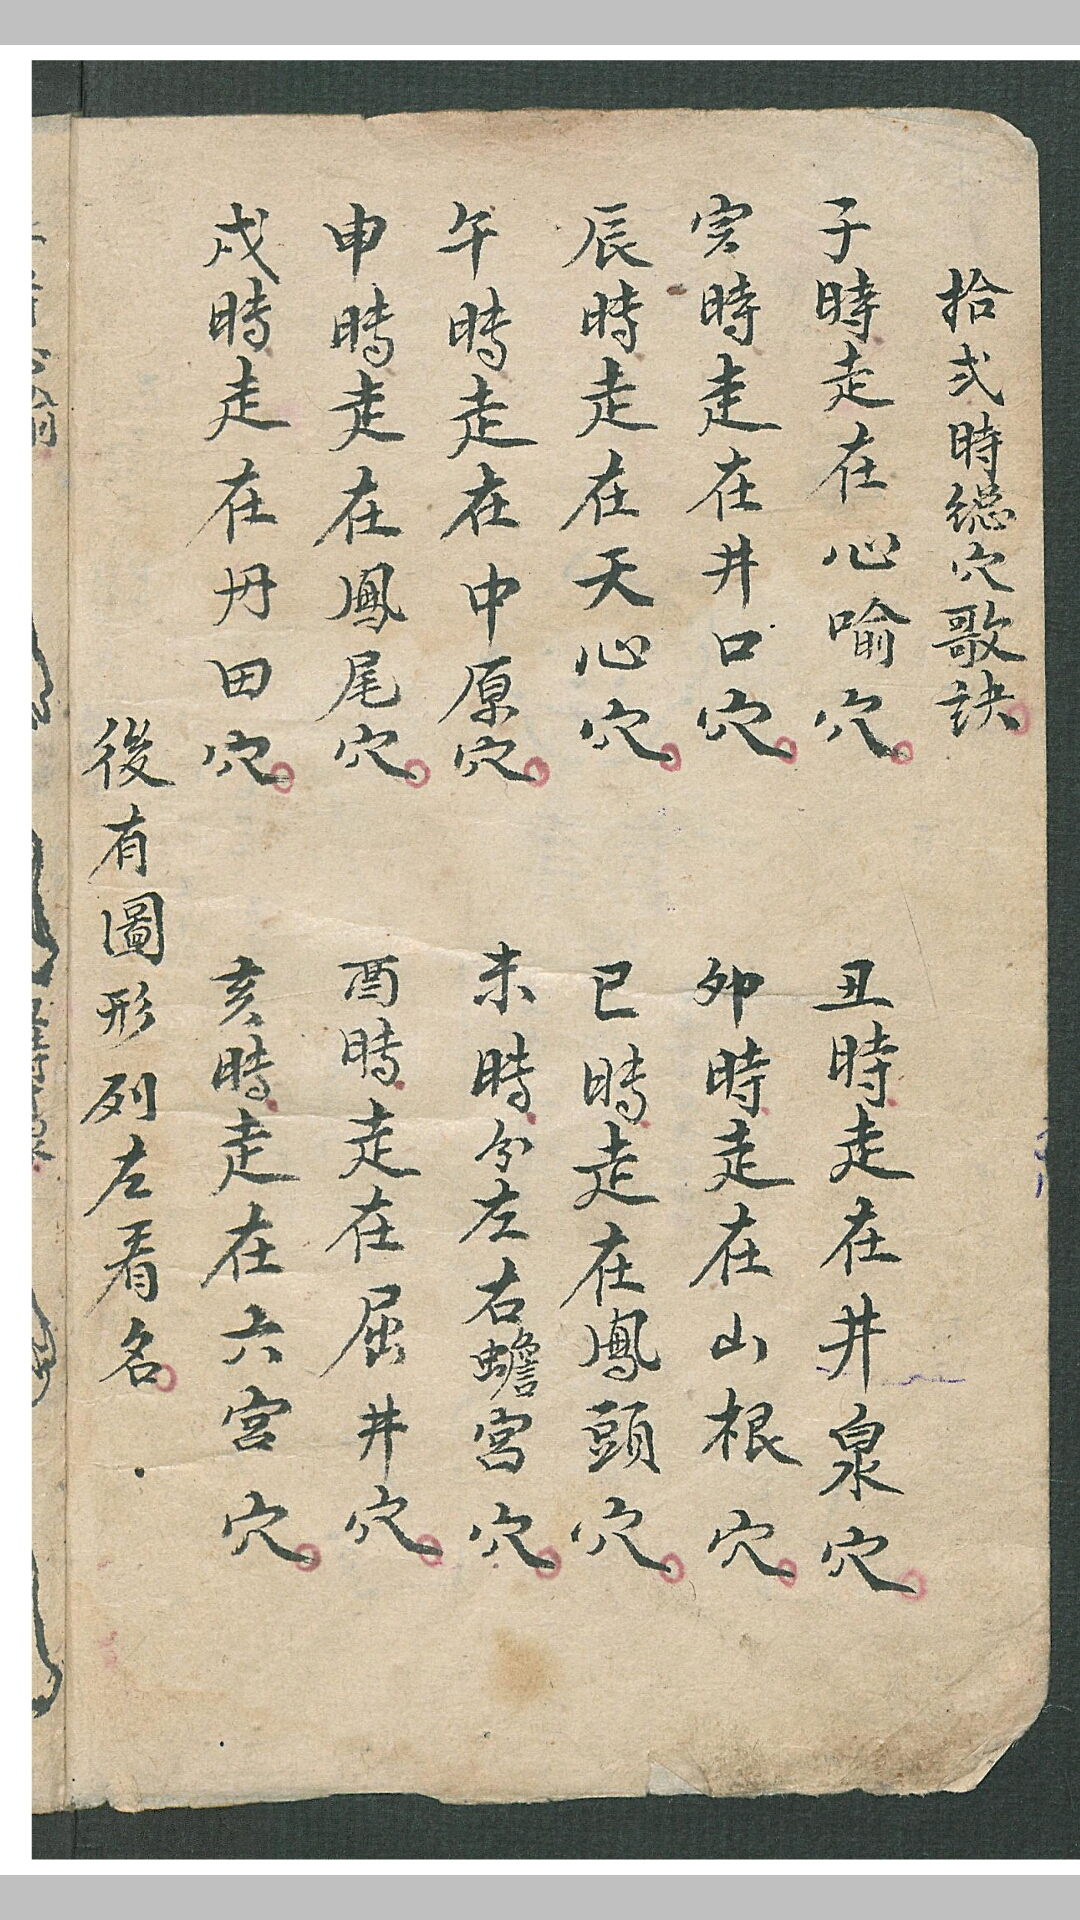 拾弍時總穴歌訣
子時走在心喻穴
丑時走在井泉穴
寅時走在井口穴
卯時走在山根穴
辰時走在天心穴
巳時走在鳳頭穴
午時走在中原穴
未時分左右蟾宮穴
申時走在鳳尾穴
酉時走在屈井穴
戍時走在丹田穴
亥時走在六宮穴
後有圖形列左看名